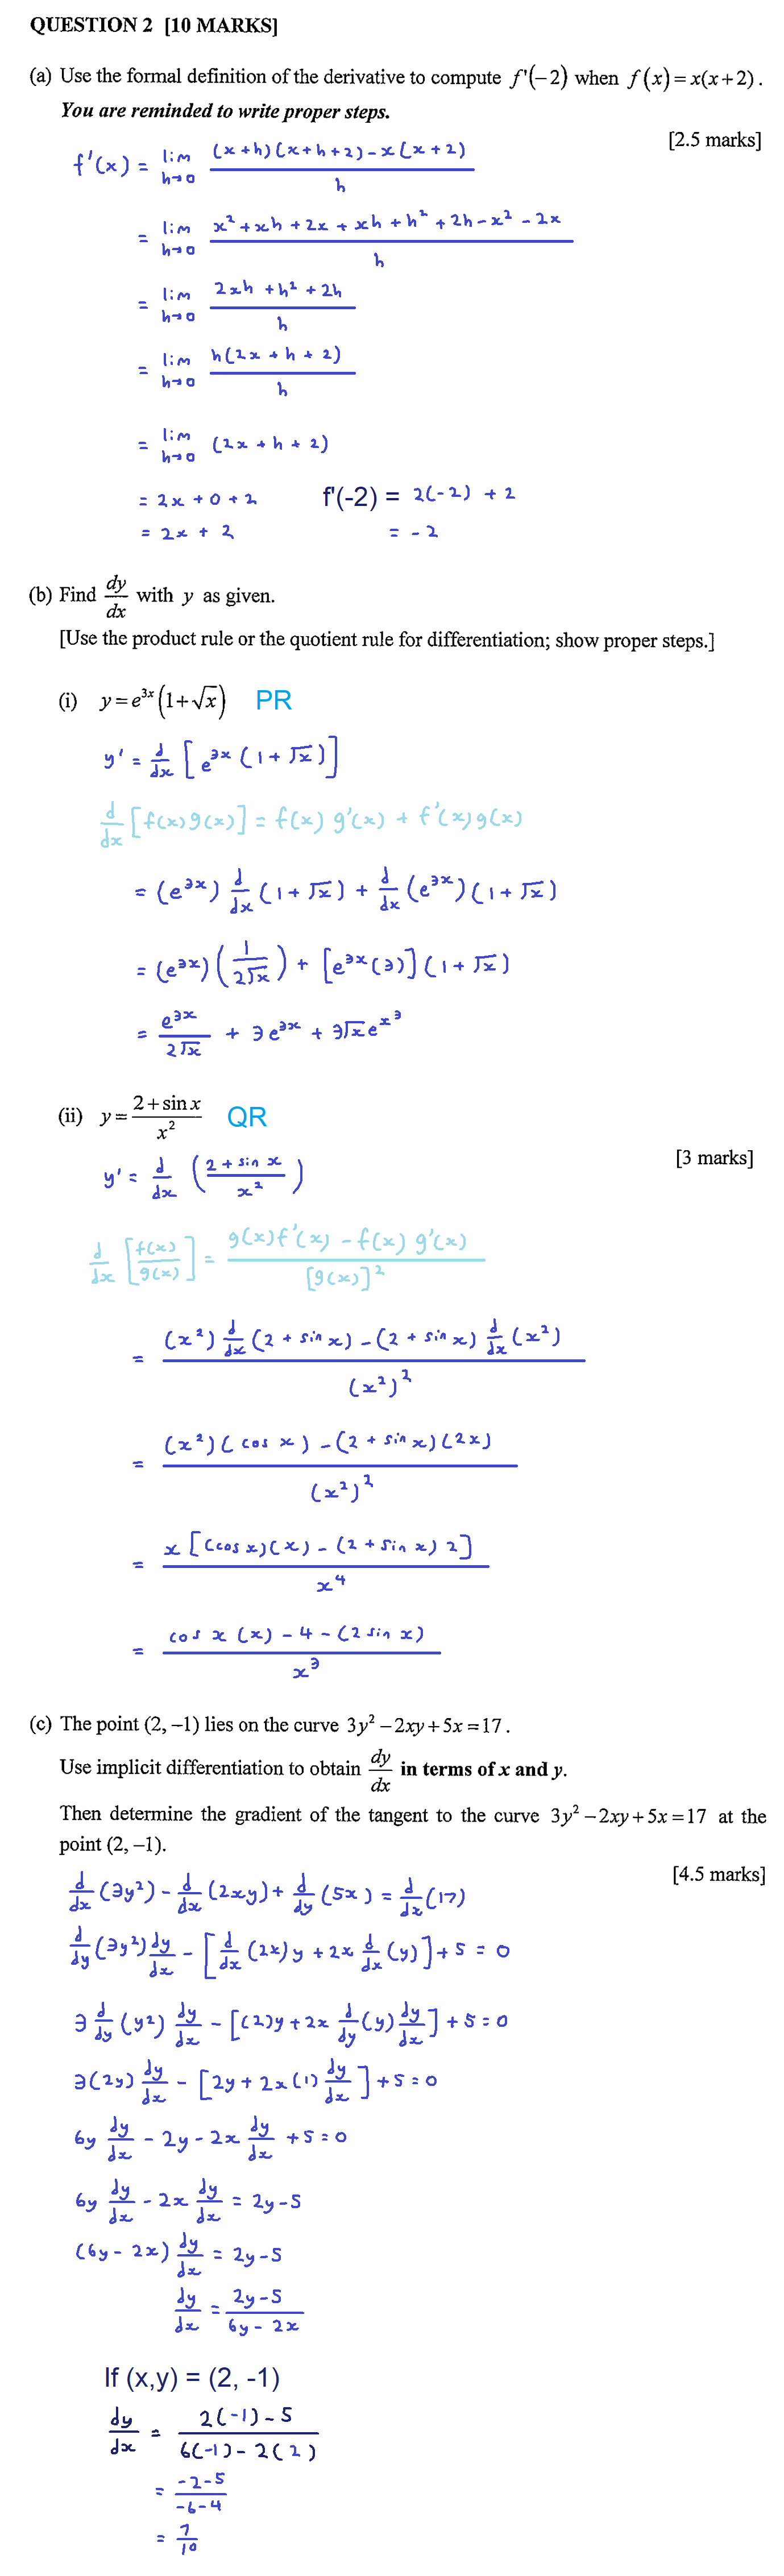 QUESTION 2 [10 MARKS]
(a) Use the formal definition of the derivative to compute f'(−2) when f(x) = x(x+2).
You are reminded to write proper steps.
[2.5 marks]
f'(x) = lim h→0 ((x+h)(x+h+2) − x(x+2)) / h
= lim h→0 (x² + xh + 2x + xh + h² + 2h − x² − 2x) / h
= lim h→0 (2xh + h² + 2h) / h
= lim h→0 h(2x + h + 2) / h
= lim h→0 (2x + h + 2)
= 2x + 0 + 2 f'(-2) = 2(-2) + 2
= 2x + 2 = -2
(b) Find dy/dx with y as given.
[Use the product rule or the quotient rule for differentiation; show proper steps.]
(i) y = e^{3x}(1+√x) PR
y' = d/dx [e^{3x}(1 + √x)]
d/dx [f(x)g(x)] = f(x) g'(x) + f'(x)g(x)
= (e^{3x}) d/dx (1 + √x) + d/dx (e^{3x})(1 + √x)
= (e^{3x})(1/(2√x)) + [e^{3x}(3)](1 + √x)
= e^{3x}/(2√x) + 3e^{3x} + 3√x e^{x3}
(ii) y = (2 + sin x)/x² QR
[3 marks]
y' = d/dx ((2 + sin x)/x²)
d/dx [f(x)/g(x)] = (g(x)f'(x) − f(x) g'(x)) / [g(x)]²
= ((x²) d/dx (2 + sin x) − (2 + sin x) d/dx (x²)) / (x²)²
= ((x²)(cos x) − (2 + sin x)(2x)) / (x²)²
= x[(cos x)(x) − (2 + sin x) 2] / x⁴
= (cos x (x) − 4 − (2 sin x)) / x³
(c) The point (2, −1) lies on the curve 3y² − 2xy + 5x = 17.
Use implicit differentiation to obtain dy/dx in terms of x and y.
Then determine the gradient of the tangent to the curve 3y² − 2xy + 5x = 17 at the
point (2, −1).
[4.5 marks]
d/dx (3y²) − d/dx (2xy) + d/dy (5x) = d/dx (17)
d/dy (3y²) dy/dx − [d/dx (2x)y + 2x d/dx (y)] + 5 = 0
3 d/dy (y²) dy/dx − [(2)y + 2x d/dy (y) dy/dx] + 5 = 0
3(2y) dy/dx − [2y + 2x(1) dy/dx] + 5 = 0
6y dy/dx − 2y − 2x dy/dx + 5 = 0
6y dy/dx − 2x dy/dx = 2y − 5
(6y − 2x) dy/dx = 2y − 5
dy/dx = (2y − 5)/(6y − 2x)
If (x,y) = (2, -1)
dy/dx = (2(-1) − 5)/(6(-1) − 2(2))
= (-2-5)/(-6-4)
= 7/10